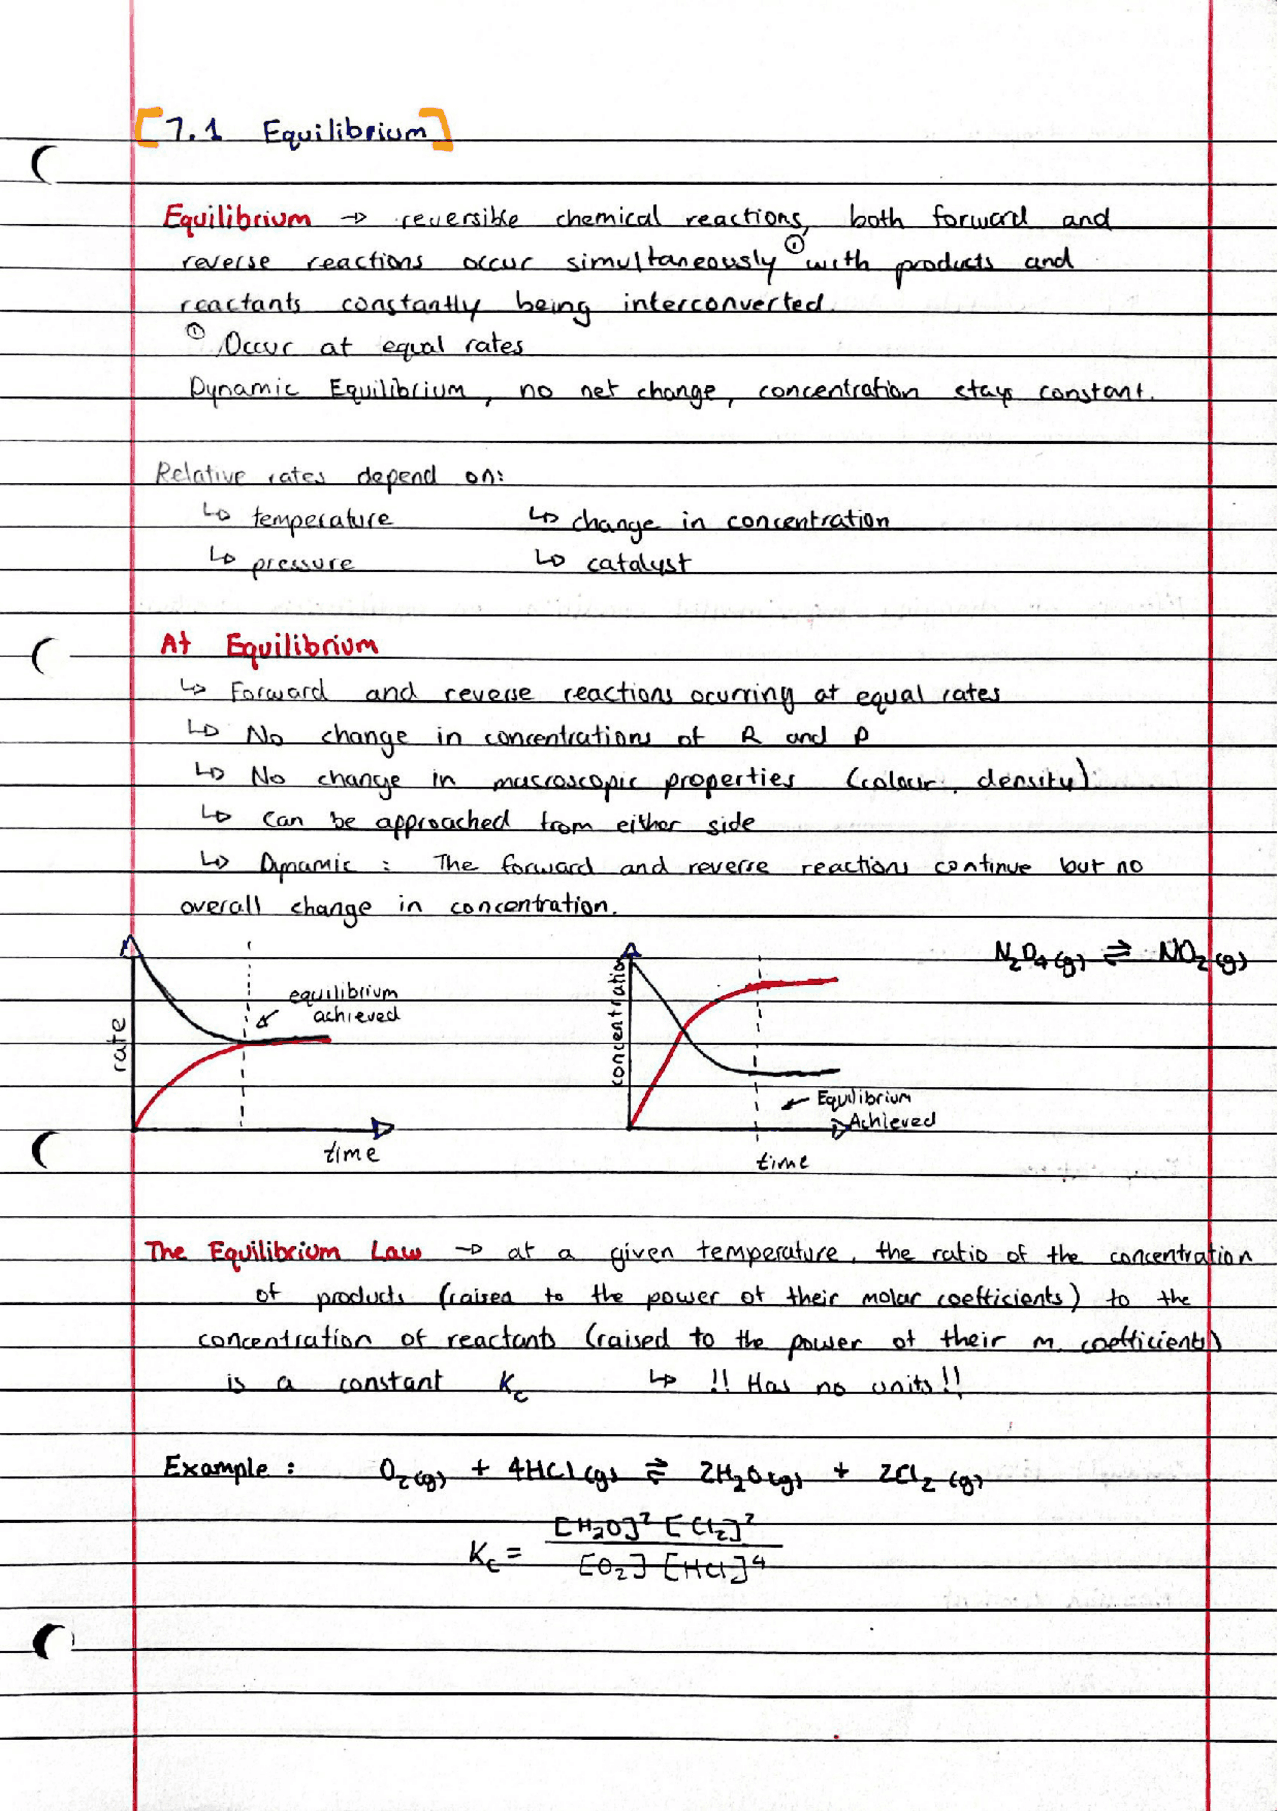 [7.1 Equilibrium]
Equilibrium → reversible chemical reactions, both forward and
reverse reactions occur simultaneously ① with products and
reactants constantly being interconverted.
① Occur at equal rates
Dynamic Equilibrium, no net change, concentration stays constant.
Relative rates depend on:
↳ temperature ↳ change in concentration
↳ pressure ↳ catalyst
At Equilibrium
↳ Forward and reverse reactions ocurring at equal rates
↳ No change in concentrations of R and P
↳ No change in macroscopic properties (colour, density)
↳ Can be approached from either side
↳ Dynamic : The forward and reverse reactions continue but no
overall change in concentration.
rate
equilibrium
achieved
time
concentration
Equilibrium
Achieved
time
N₂O₄(g) ⇌ NO₂(g)
The Equilibrium Law → at a given temperature, the ratio of the concentration
of products (raised to the power of their molar coefficients) to the
concentration of reactants (raised to the power of their m. coefficients)
is a constant Kc ↳ !! Has no units!!
Example : O₂(g) + 4HCl(g) ⇌ 2H₂O(g) + 2Cl₂(g)
[H₂O]² [Cl₂]²
Kc =
[O₂] [HCl₂]⁴